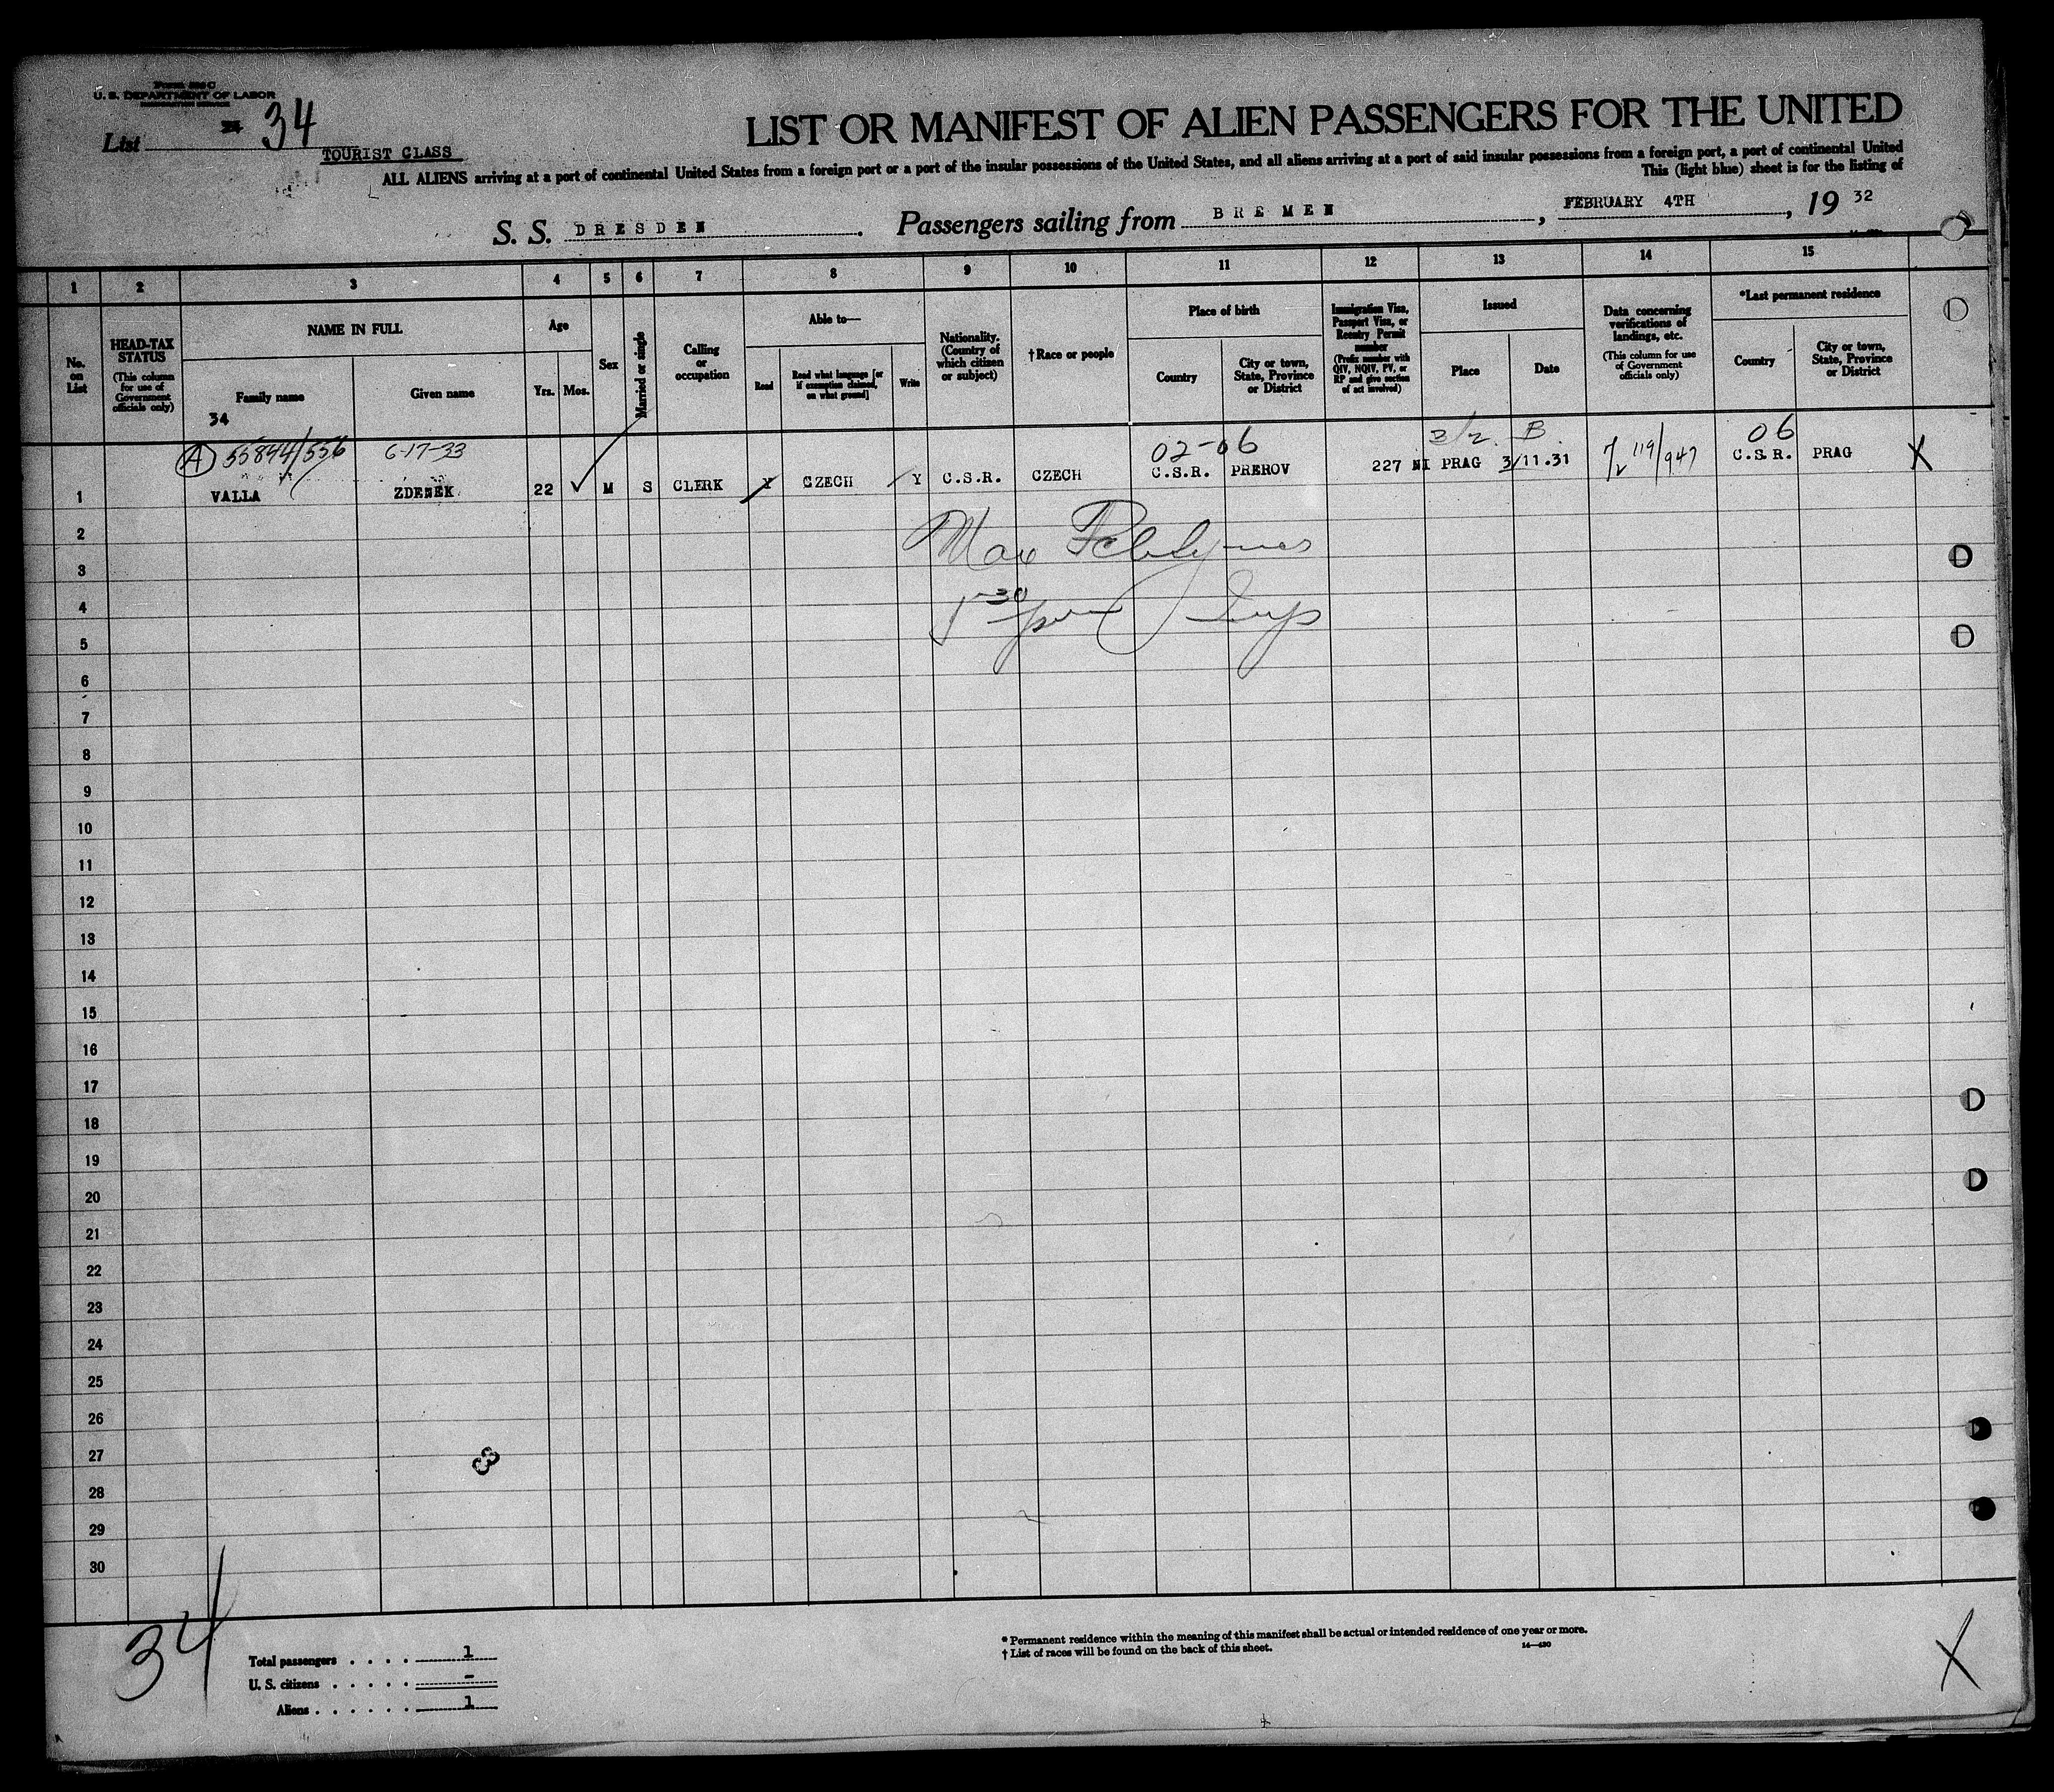 U. S. DEPARTMENT OF LABOR
List 34
TOURIST CLASS
LIST OR MANIFEST OF ALIEN PASSENGERS FOR THE UNITED
ALL ALIENS arriving at a port of continental United States from a foreign port or a port of the insular possessions of the United States, and all aliens arriving at a port of said insular possessions from a foreign port, a port of continental United
This (light blue) sheet is for the listing of
S. S. DRESDEN. Passengers sailing from BREMEN, FEBRUARY 4TH, 19 32
1 2 3 4 5 6 7 8 9 10 11 12 13 14 15
No. on List
HEAD-TAX STATUS
(This column for use of Government officials only)
NAME IN FULL
Family name
Given name
34
Age
Yrs. Mos.
Sex
Married or single
Calling or occupation
Able to—
Read
Read what language [or if exemption claimed, on what ground]
Write
Nationality. (Country of which citizen or subject)
†Race or people
Place of birth
Country
City or town, State, Province or District
Immigration Visa, Passport Visa, or Reentry Permit number
(Prefix number with QIV, NQIV, PV, or RP and give section of act involved)
Issued
Place
Date
Data concerning verifications of landings, etc.
(This column for use of Government officials only)
*Last permanent residence
Country
City or town, State, Province or District
A 55894/556 6-17-33 02-06 3/2. B 119/947 06 X
1 VALLA ZDENEK 22 M S CLERK Y CZECH Y C.S.R. CZECH C.S.R. PREROV 227 NI PRAG 3/11.31 C.S.R. PRAG
2
3
4
5
6
7
8
9
10
11
12
13
14
15
16
17
18
19
20
21
22
23
24
25
26
27
28
29
30
34
Total passengers . . . . 1
U. S. citizens . . . . . –
Aliens . . . . . . 1
* Permanent residence within the meaning of this manifest shall be actual or intended residence of one year or more.
† List of races will be found on the back of this sheet.
14—430
X